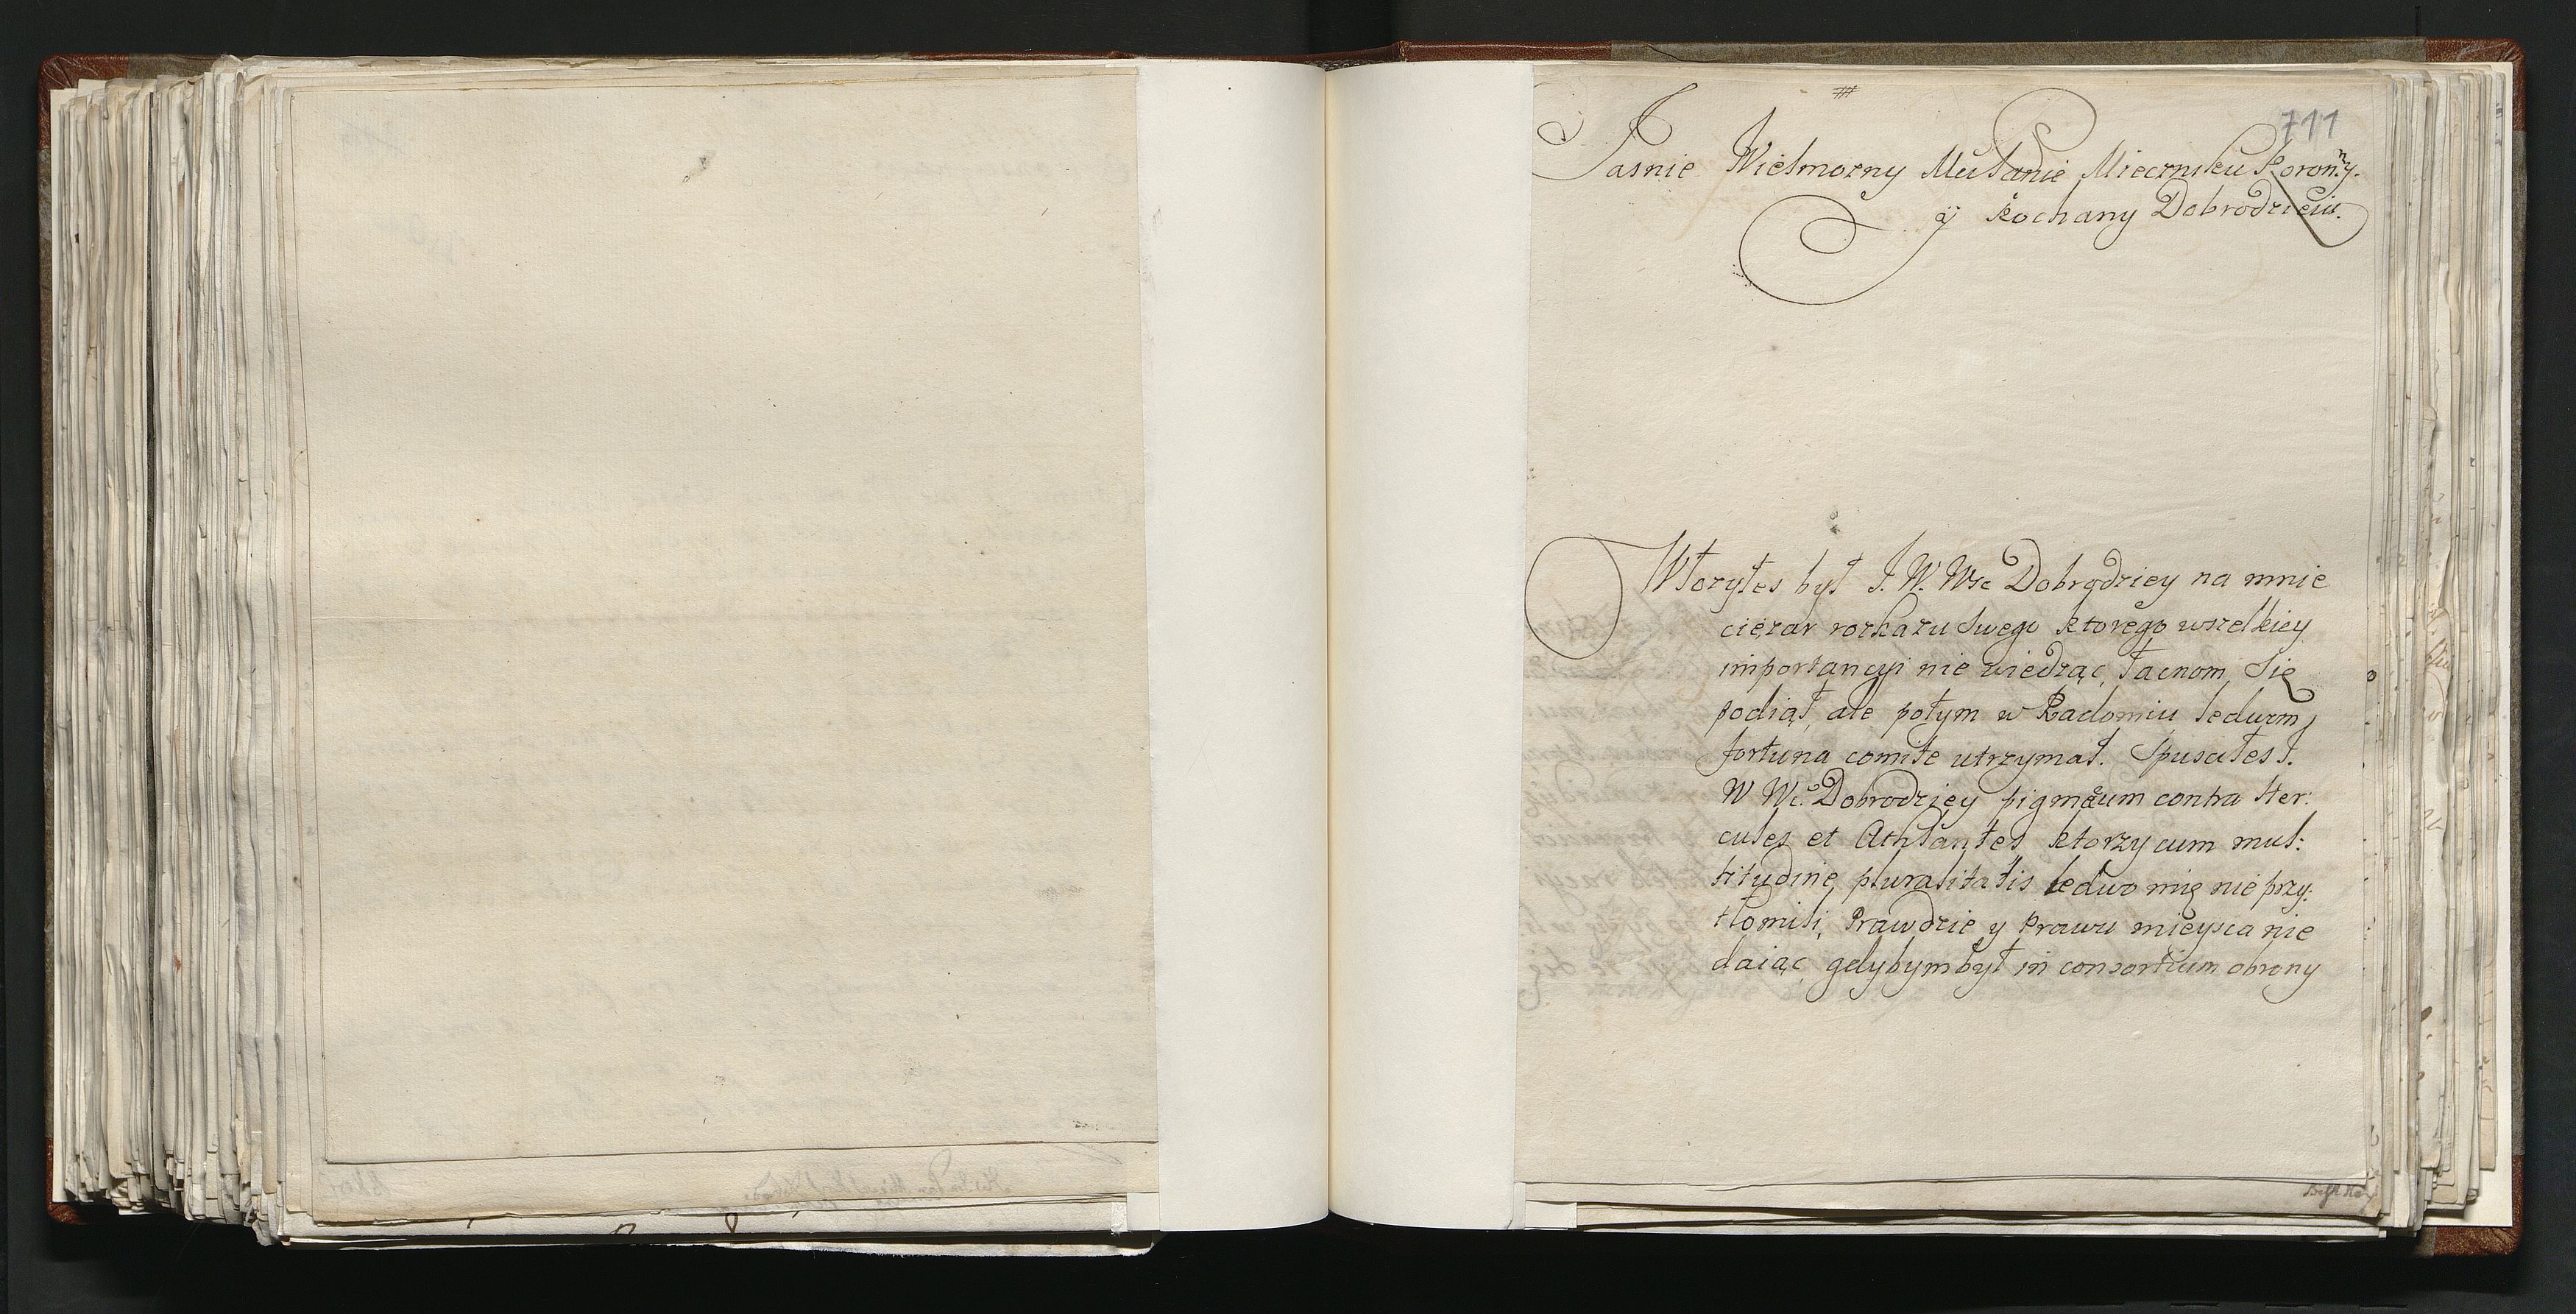 711
Jasnie Wielmozny Mci Panie Mieczniku Koronny.
ÿ Kochany Dobrodzieiu.
Włozyłes był J. W. Wsc Dobrodziey na mnie
cięzar rozkazu swego ktorego wszelkiey
importancyi nie wiedząc, łacnom się
podiął, ale potym w Radomiu ledwom,
fortuna comite utrzymał. Spusciłes J.
W Wc. Dobrodziey pigmæum contra Her:
cules et Athlantes ktorzy cum mul:
titudine pluralitatis ledwo mię nie przy:
tłomili, Prawdzie y Prawu mieysca nie
daiąc, gdybym był in consortium obrony